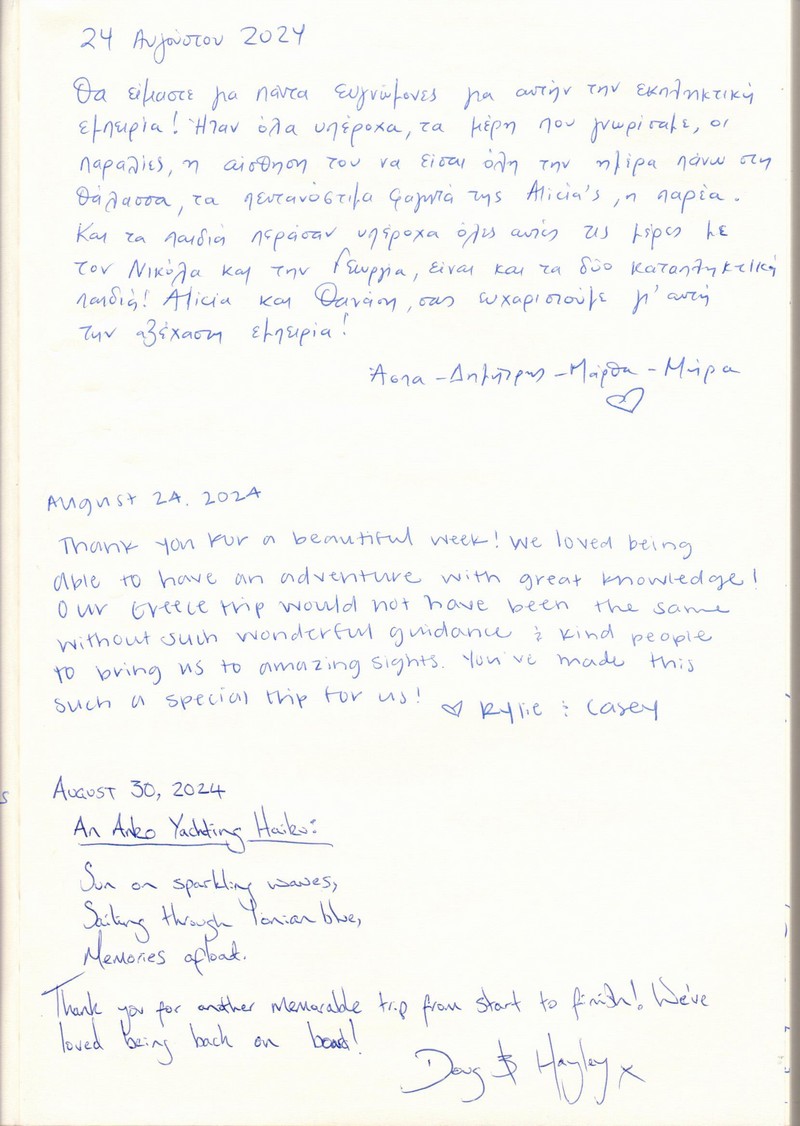 24 Αυγούστου 2024
Θα είμαστε για πάντα ευγνώμονες για αυτήν την εκπληκτική
εμπειρία! Ήταν όλα υπέροχα, τα μέρη που γνωρίσαμε, οι
παραλίες, η αίσθηση του να είσαι όλη την ημέρα πάνω στη
θάλασσα, τα πεντανόστιμα φαγητά της Alicia's, η παρέα.
Και τα παιδιά πέρασαν υπέροχα όλες αυτές τις μέρες με
τον Νικόλα και την Γεωργία, είναι και τα δύο καταπληκτικά
παιδιά! Alicia και Θανάση, σας ευχαριστούμε γι' αυτή
την αξέχαστη εμπειρία!
Άσπα - Δημήτρης - Μάρθα - Μάιρα
August 24. 2024
Thank you for a beautiful week! We loved being
able to have an adventure with great knowledge!
Our Greece trip would not have been the same
without such wonderful guidance & kind people
to bring us to amazing sights. You've made this
such a special trip for us! ♡ Kylie & Casey
August 30, 2024
An Anko Yachting Haiku:
Sun on sparkling waves,
Sailing through Ionian blue,
Memories afloat.
Thank you for another memorable trip from start to finish! We've
loved being back on board!
Doug & Hayley x